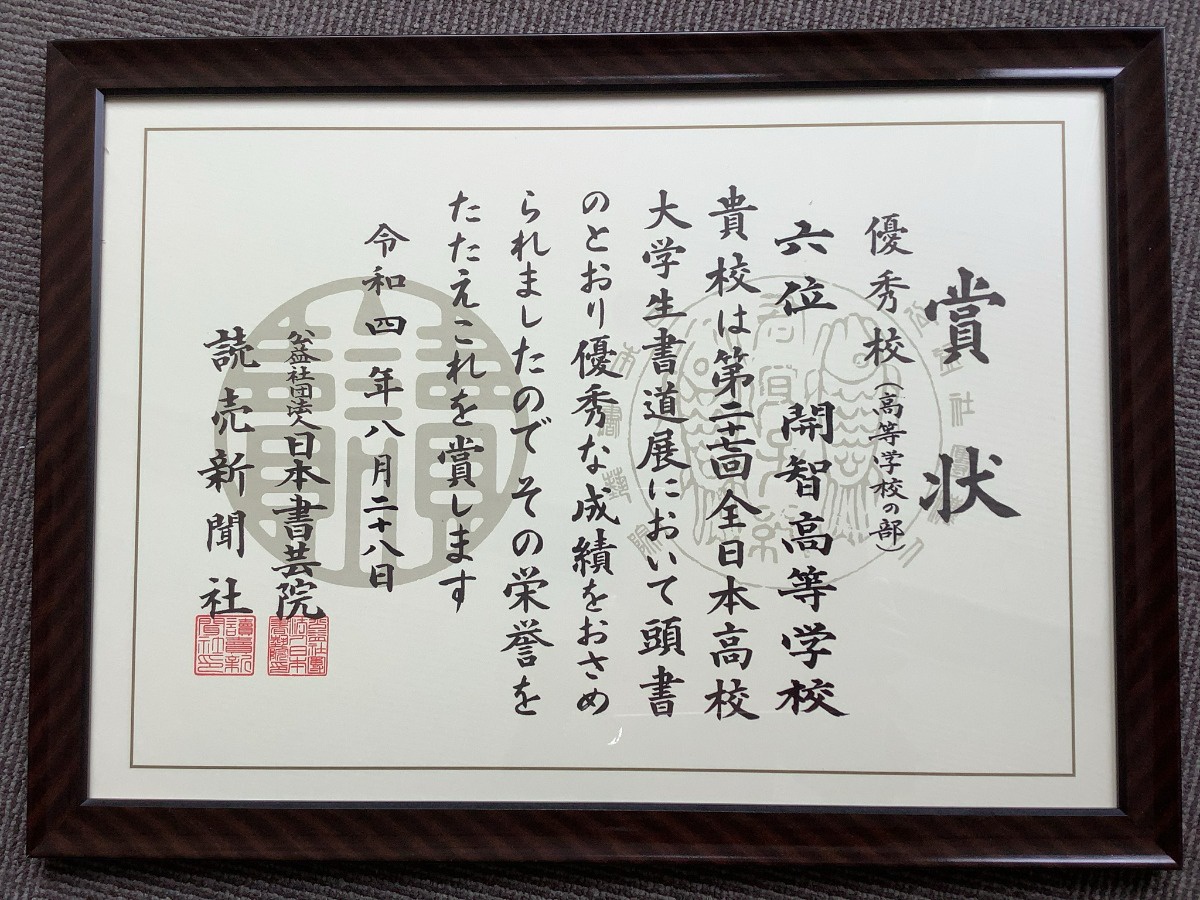 賞状
優秀校（高等学校の部）
六位 開智高等学校
貴校は第二十七回全日本高校
大学生書道展において頭書
のとおり優秀な成績をおさめ
られましたのでその栄誉を
たたえこれを賞します
令和四年八月二十八日
公益社団法人日本書芸院
読売新聞社